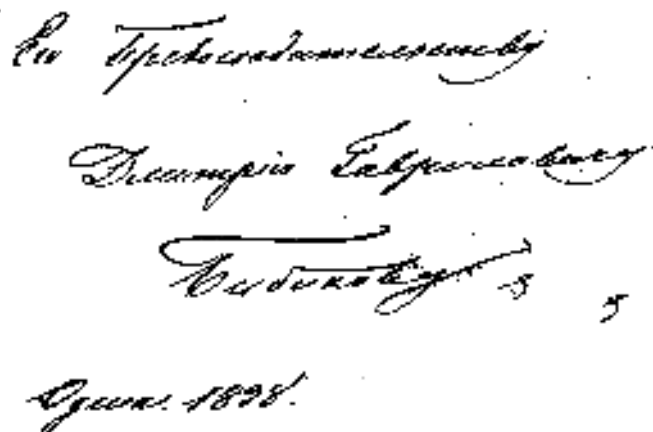 Его Превосходительству
Дмитрію Гавриловичу
Бибикову
1838.